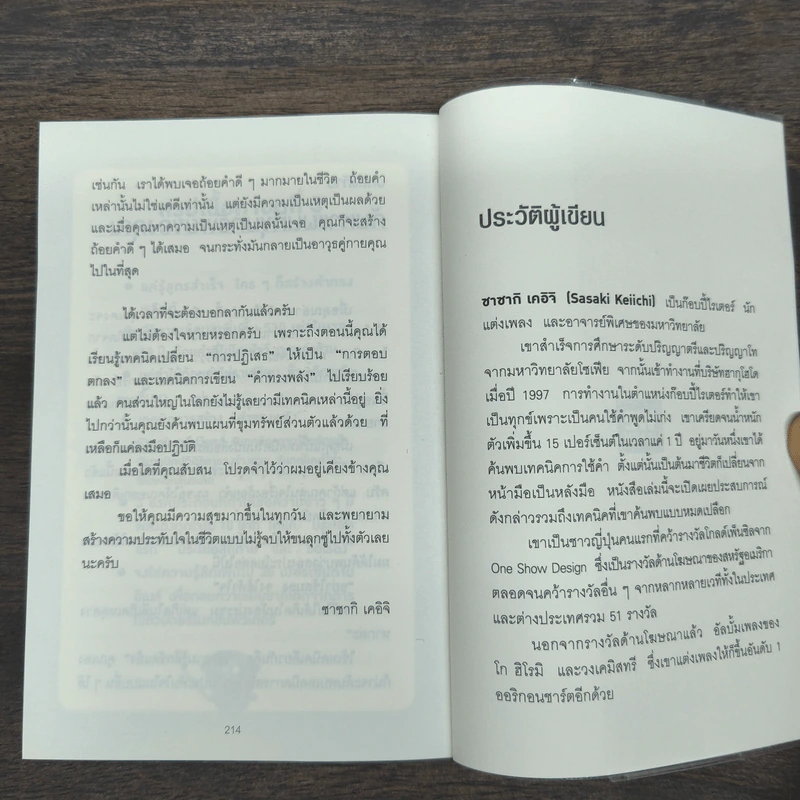 เช่นกัน เราได้พบเจอถ้อยคำดี ๆ มากมายในชีวิต ถ้อยคำ
เหล่านั้นไม่ใช่แค่ดีเท่านั้น แต่ยังมีความเป็นเหตุเป็นผลด้วย
และเมื่อคุณหาความเป็นเหตุเป็นผลนั้นเจอ คุณก็จะสร้าง
ถ้อยคำดี ๆ ได้เสมอ จนกระทั่งมันกลายเป็นอาวุธคู่กายคุณ
ไปในที่สุด
ได้เวลาที่จะต้องบอกลากันแล้วครับ
แต่ไม่ต้องใจหายหรอกครับ เพราะถึงตอนนี้คุณได้
เรียนรู้เทคนิคเปลี่ยน “การปฏิเสธ” ให้เป็น “การตอบ
ตกลง” และเทคนิคการเขียน “คำทรงพลัง” ไปเรียบร้อย
แล้ว คนส่วนใหญ่ในโลกยังไม่รู้เลยว่ามีเทคนิคเหล่านี้อยู่ ยิ่ง
ไปกว่านั้นคุณยังค้นพบแผนที่ขุมทรัพย์ส่วนตัวแล้วด้วย ที่
เหลือก็แค่ลงมือปฏิบัติ
เมื่อใดที่คุณสับสน โปรดจำไว้ว่าผมอยู่เคียงข้างคุณ
เสมอ
ขอให้คุณมีความสุขมากขึ้นในทุกวัน และพยายาม
สร้างความประทับใจในชีวิตแบบไม่รู้จบให้ขนลุกซู่ไปทั้งตัวเลย
นะครับ
ซาซากิ เคอิจิ
214
ประวัติผู้เขียน
ซาซากิ เคอิจิ (Sasaki Keiichi) เป็นก๊อบปี้ไรเตอร์ นัก
แต่งเพลง และอาจารย์พิเศษของมหาวิทยาลัย
เขาสำเร็จการศึกษาระดับปริญญาตรีและปริญญาโท
จากมหาวิทยาลัยโซเฟีย จากนั้นเข้าทำงานที่บริษัทฮากุโฮโด
เมื่อปี 1997 การทำงานในตำแหน่งก๊อบปี้ไรเตอร์ทำให้เขา
เป็นทุกข์เพราะเป็นคนใช้คำพูดไม่เก่ง เขาเครียดจนน้ำหนัก
ตัวเพิ่มขึ้น 15 เปอร์เซ็นต์ในเวลาแค่ 1 ปี อยู่มาวันหนึ่งเขาได้
ค้นพบเทคนิคการใช้คำ ตั้งแต่นั้นเป็นต้นมาชีวิตก็เปลี่ยนจาก
หน้ามือเป็นหลังมือ หนังสือเล่มนี้จะเปิดเผยประสบการณ์
ดังกล่าวรวมถึงเทคนิคที่เขาค้นพบแบบหมดเปลือก
เขาเป็นชาวญี่ปุ่นคนแรกที่คว้ารางวัลโกลด์เพ็นซิลจาก
One Show Design ซึ่งเป็นรางวัลด้านโฆษณาของสหรัฐอเมริกา
ตลอดจนคว้ารางวัลอื่น ๆ จากหลากหลายเวทีทั้งในประเทศ
และต่างประเทศรวม 51 รางวัล
นอกจากรางวัลด้านโฆษณาแล้ว อัลบั้มเพลงของ
โก ฮิโรมิ และวงเคมิสทรี ซึ่งเขาแต่งเพลงให้ก็ขึ้นอันดับ 1
ออริกอนชาร์ตอีกด้วย